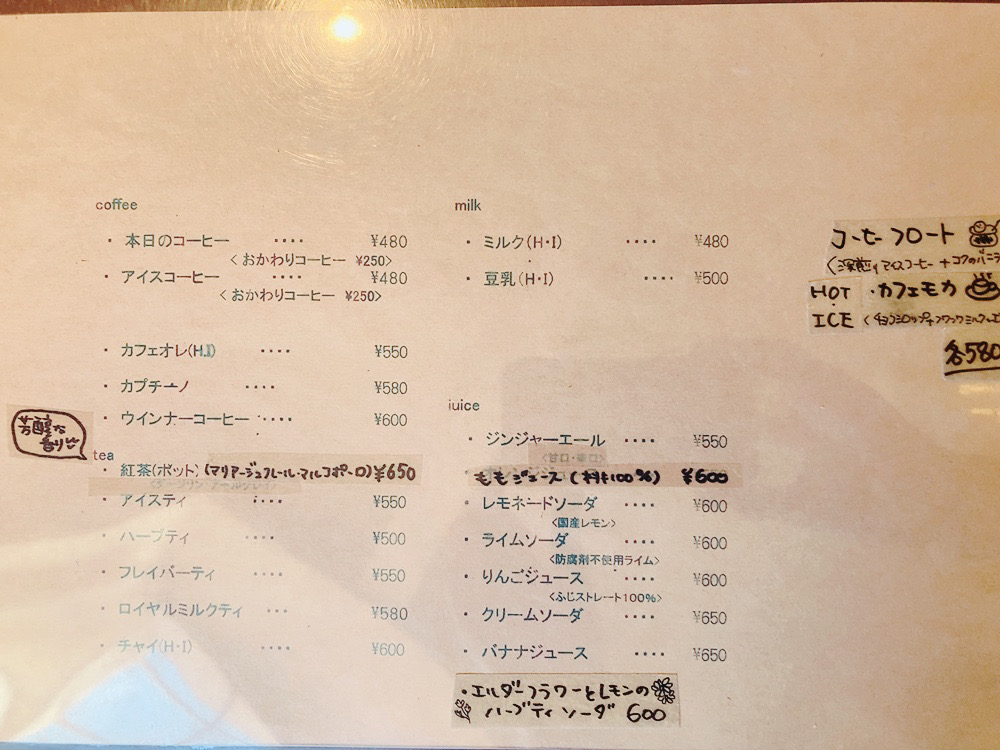 coffee
・ 本日のコーヒー ・・・・ ¥480
< おかわりコーヒー ¥250>
・ アイスコーヒー ・・・・ ¥480
< おかわりコーヒー ¥250>
・ カフェオレ(H.I) ・・・・ ¥550
・ カプチーノ ・・・・ ¥580
・ ウインナーコーヒー ・・・・ ¥600
芳醇な
香り
tea
・ 紅茶(ポット) (マリアージュフレール・マルコポーロ) ¥650
・ アイスティ ・・・・ ¥550
・ ハーブティ ・・・・ ¥500
・ フレイバーティ ・・・・ ¥550
・ ロイヤルミルクティ ・・・ ¥580
・ チャイ(H・I) ・・・・ ¥600
milk
・ ミルク(H・I) ・・・・ ¥480
・ 豆乳(H・I) ・・・・ ¥500
juice
・ ジンジャーエール ・・・・ ¥550
<甘口・辛口>
ももジュース (100%) ¥600
・ レモネードソーダ ・・・・ ¥600
<国産レモン>
・ ライムソーダ ・・・・ ¥600
<防腐剤不使用ライム>
・ りんごジュース ・・・・ ¥600
<ふじストレート100%>
・ クリームソーダ ・・・・ ¥650
・ バナナジュース ・・・・ ¥650
・エルダーフラワーとレモンの
ハーブティソーダ 600
コーヒーフロート
<深煎りアイスコーヒー+コクのバニラ
HOT ・カフェモカ
ICE <チョコシロップ+フワフワミルク
各580